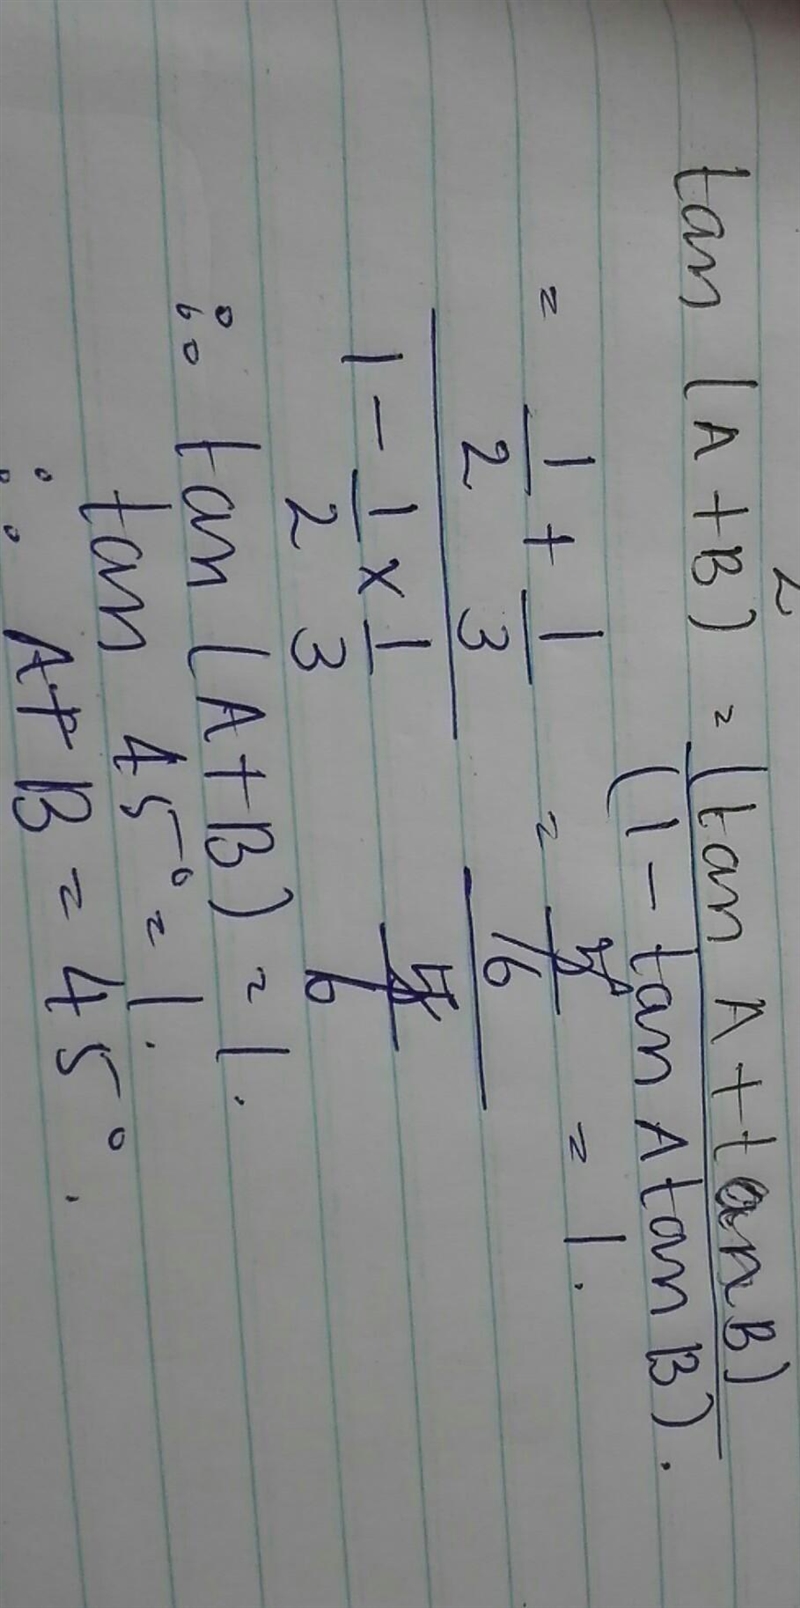 2
tan (A + B) = (tan A + tan B)
(1 - tan A tan B).
= 1/2 + 1/3 = 5/6 = 1.
1 - 1/2 × 1/3 5/6
∴ tan (A + B) = 1.
tan 45° = 1.
∴ A + B = 45°.